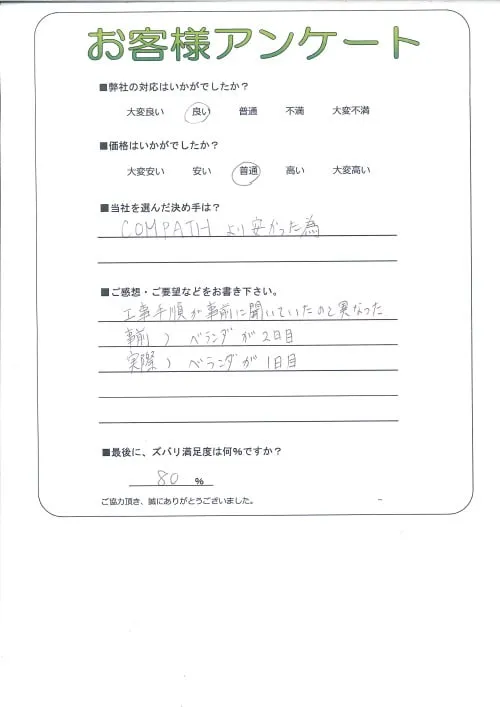 お客様アンケート
■弊社の対応はいかがでしたか？
大変良い 良い 普通 不満 大変不満
■価格はいかがでしたか？
大変安い 安い 普通 高い 大変高い
■当社を選んだ決め手は？
COMPATHより安かった為
■ご感想・ご要望などをお書き下さい。
工事手順が事前に聞いていたのと異なった
事前） ベランダが2日目
実際） ベランダが1日目
■最後に、ズバリ満足度は何%ですか？
80 %
ご協力頂き、誠にありがとうございました。